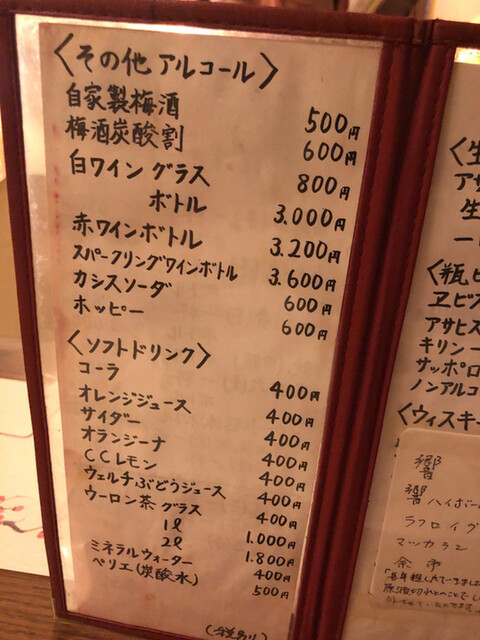 〈その他 アルコール〉
自家製梅酒 500円
梅酒炭酸割 600円
白ワイン グラス 800円
ボトル 3.000円
赤ワインボトル 3.200円
スパークリングワインボトル 3.600円
カシスソーダ 600円
ホッピー 600円
〈ソフトドリンク〉
コーラ 400円
オレンジジュース 400円
サイダー 400円
オランジーナ 400円
CCレモン 400円
ウェルチぶどうジュース 400円
ウーロン茶 グラス 400円
1ℓ 1.000円
2ℓ 1.800円
ミネラルウォーター 400円
ペリエ(炭酸水) 500円
(税別)
〈生
アサ
生
〈瓶ビ
ヱビス
アサヒス
キリンー
サッポロ
ノンアルコ
〈ウィスキー
響
響ハイボー
ラフロイグ
マッカラン
余市